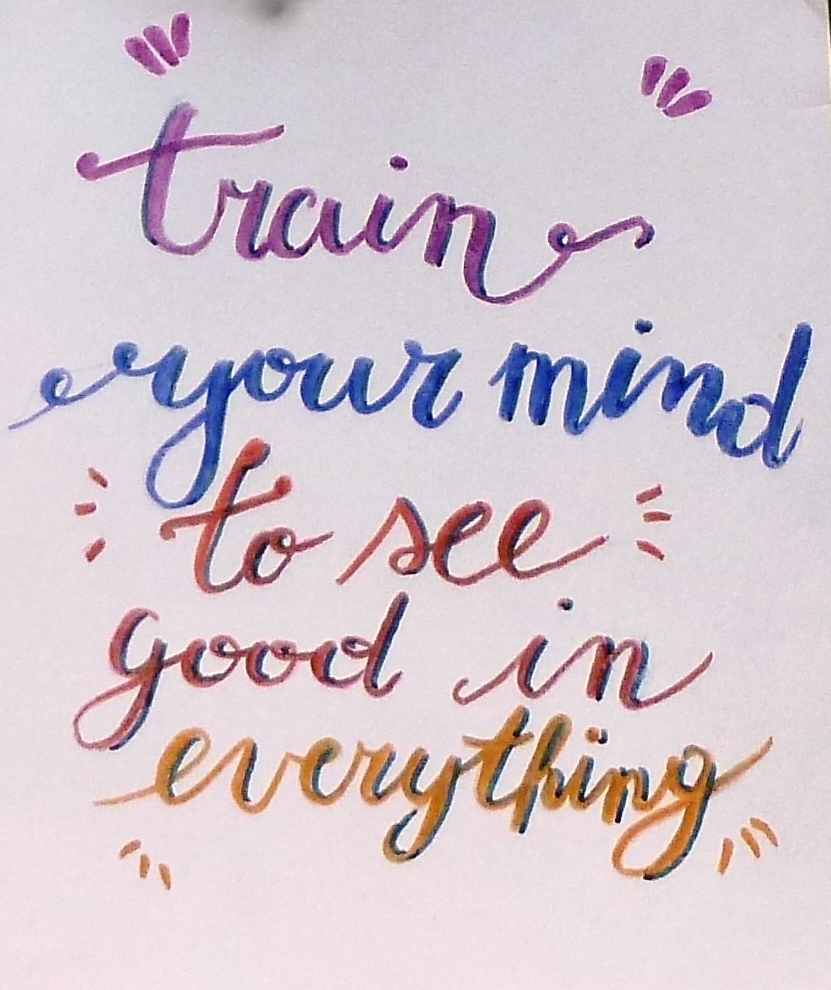 train
your mind
to see
good in
everything